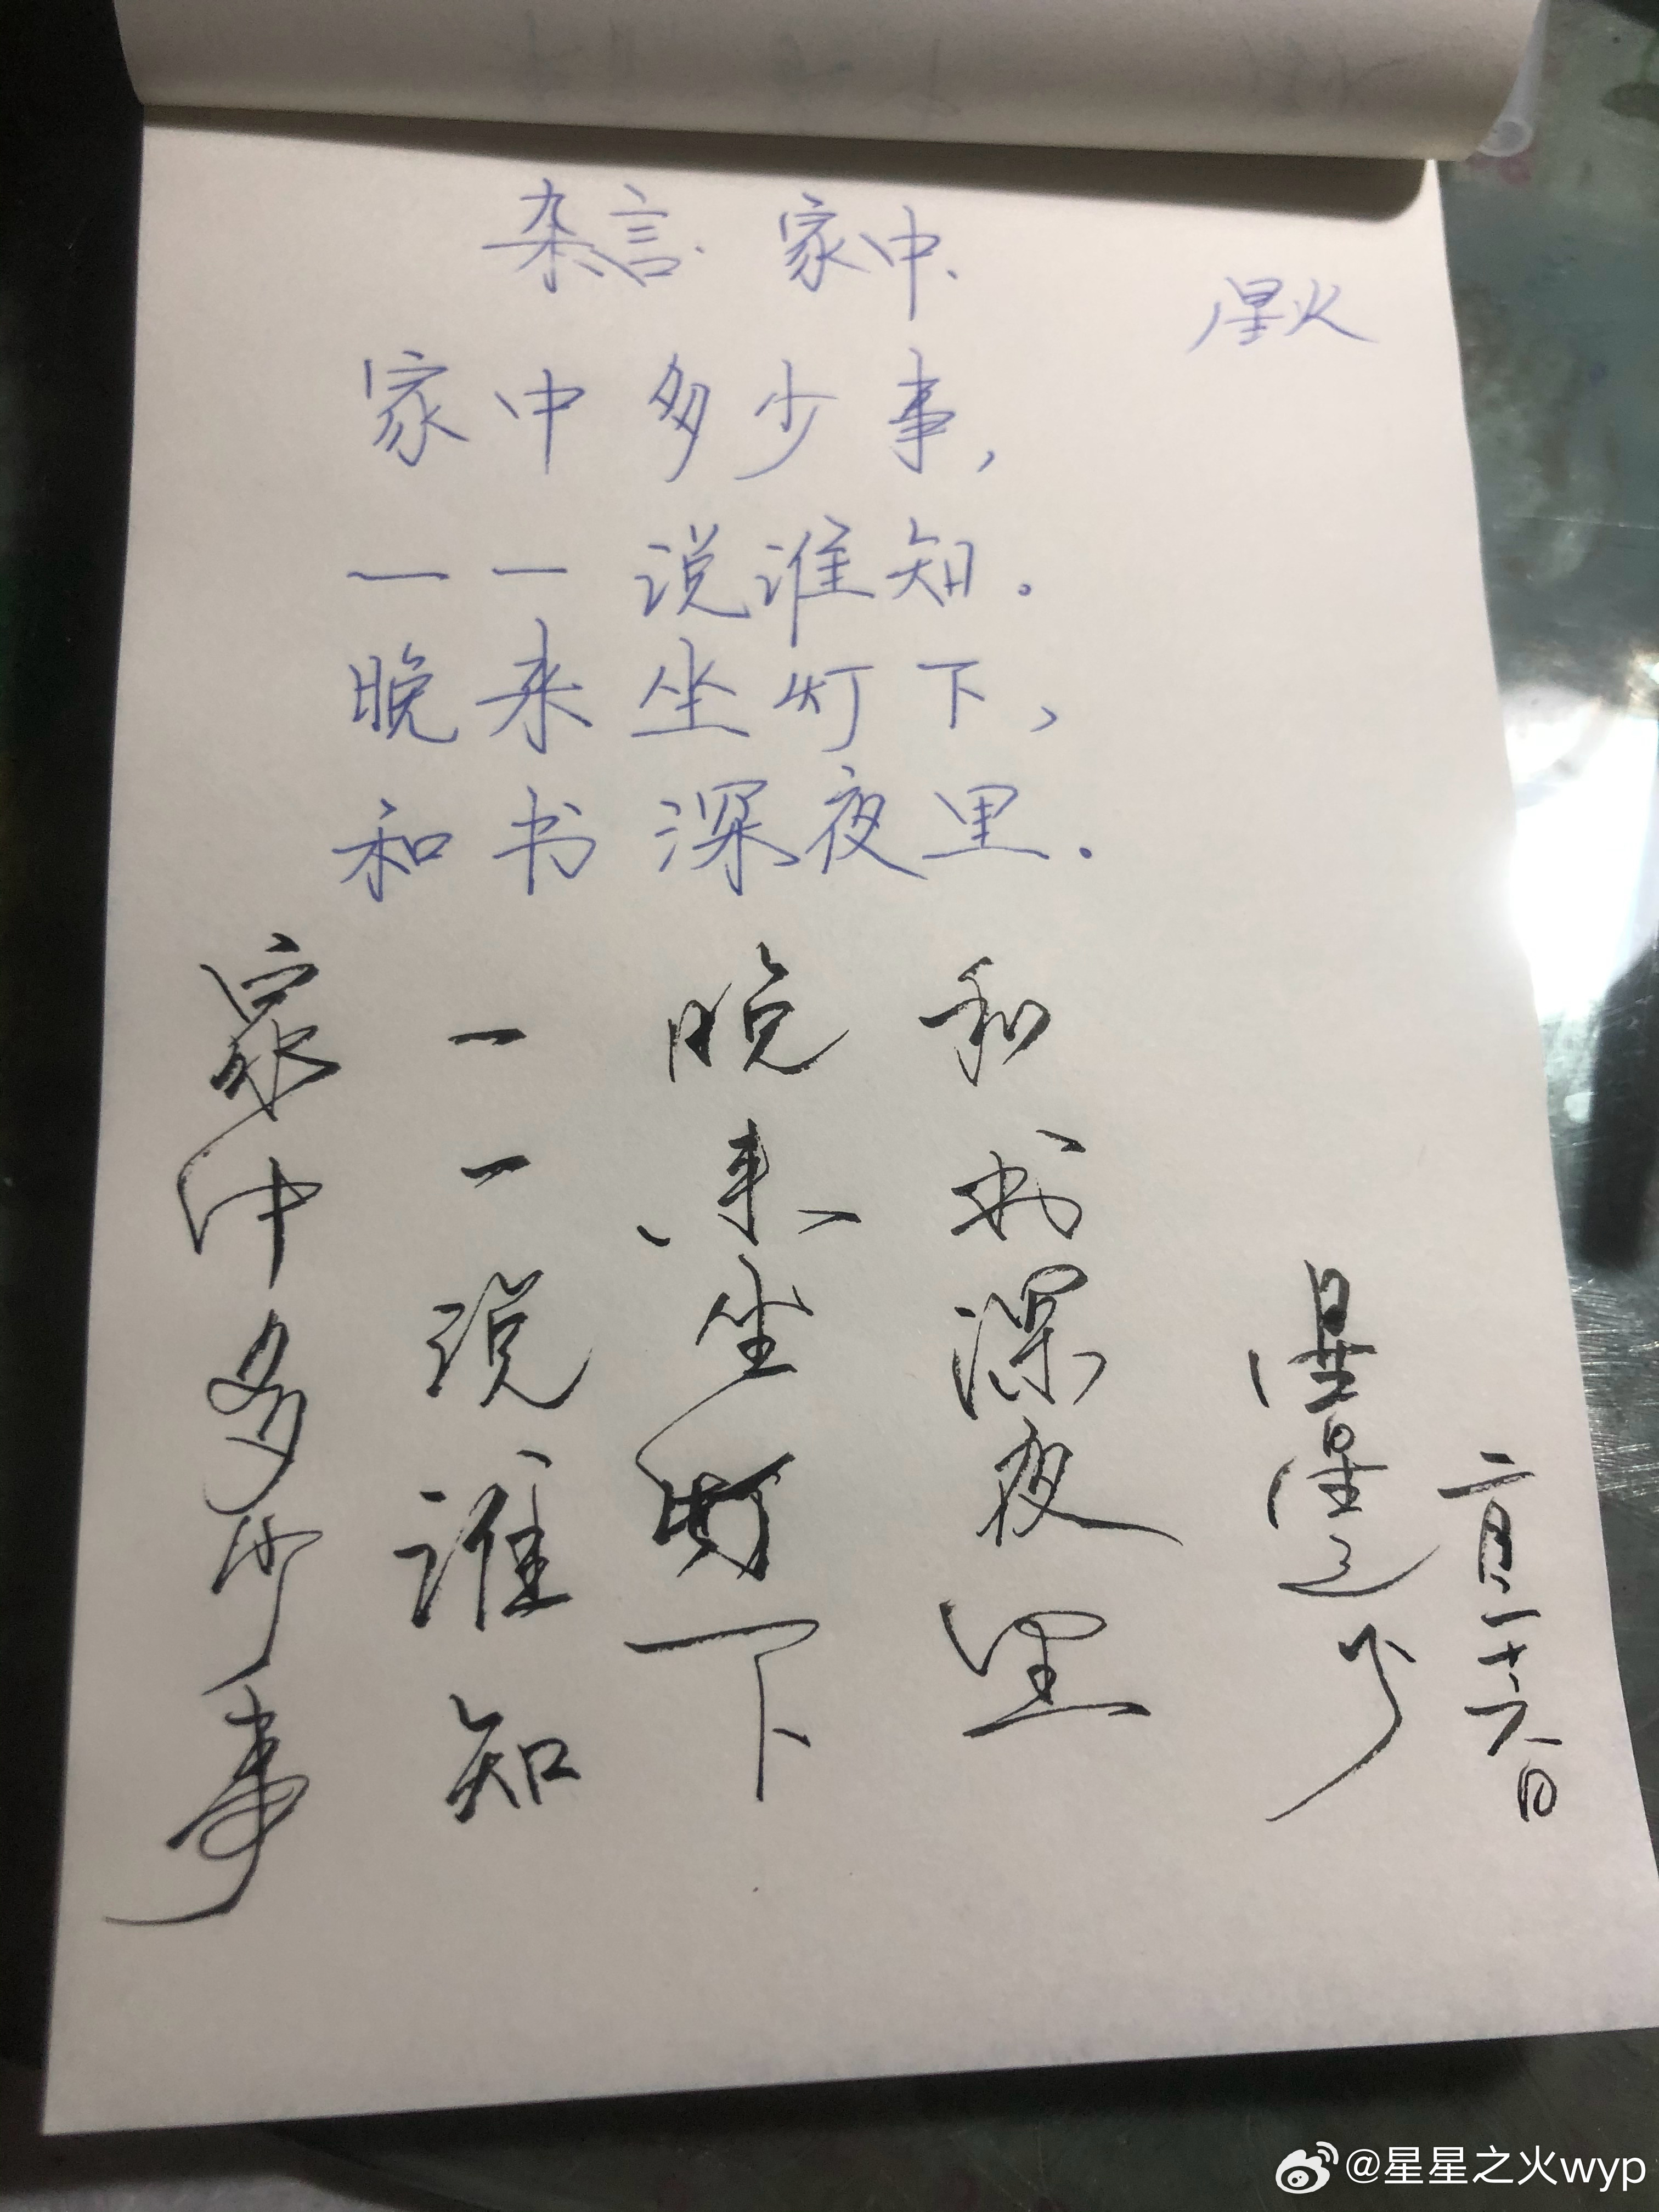 杂言.家中.
星火
家中多少事,
一一说谁知.
晚来坐灯下,
和书深夜里.
家中多少事
一一说谁知
晚来坐灯下
和书深夜里
星星之
二月二十六日
@星星之火wyp